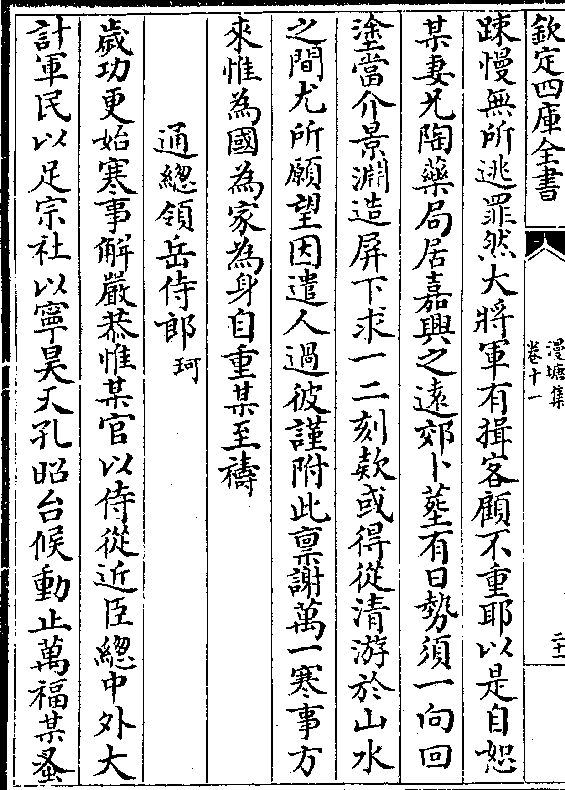 欽定四庫全書
漫塘集
卷十一
二十一
踈慢無所逃罪然大將軍有揖客顧不重耶以是自恕
某妻兄陶藥局居嘉興之遠郊卜塟有日勢須一向回
塗當介景淵造屏下求一二刻欵或得從清游於山水
之間尤所願望因遣人過彼謹附此禀謝萬一寒事方
來惟為國為家為身自重某至禱
通總領岳侍郎珂
歲功更始寒事解嚴恭惟某官以侍從近臣總中外大
計軍民以足宗社以寧昊天孔昭台候動止萬福某蚤